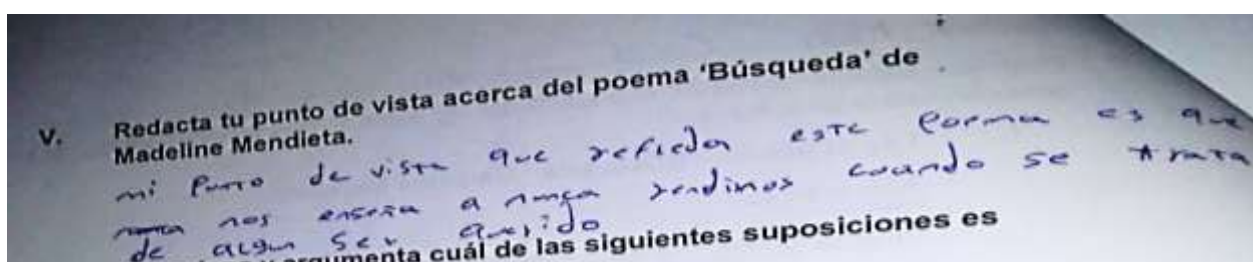 V. Redacta tu punto de vista acerca del poema 'Búsqueda' de
Madeline Mendieta.
mi Punto de vista que este Poema es que
nos enseña a nunca rendirnos cuando se trata
de algun ser querido
argumenta cuál de las siguientes suposiciones es